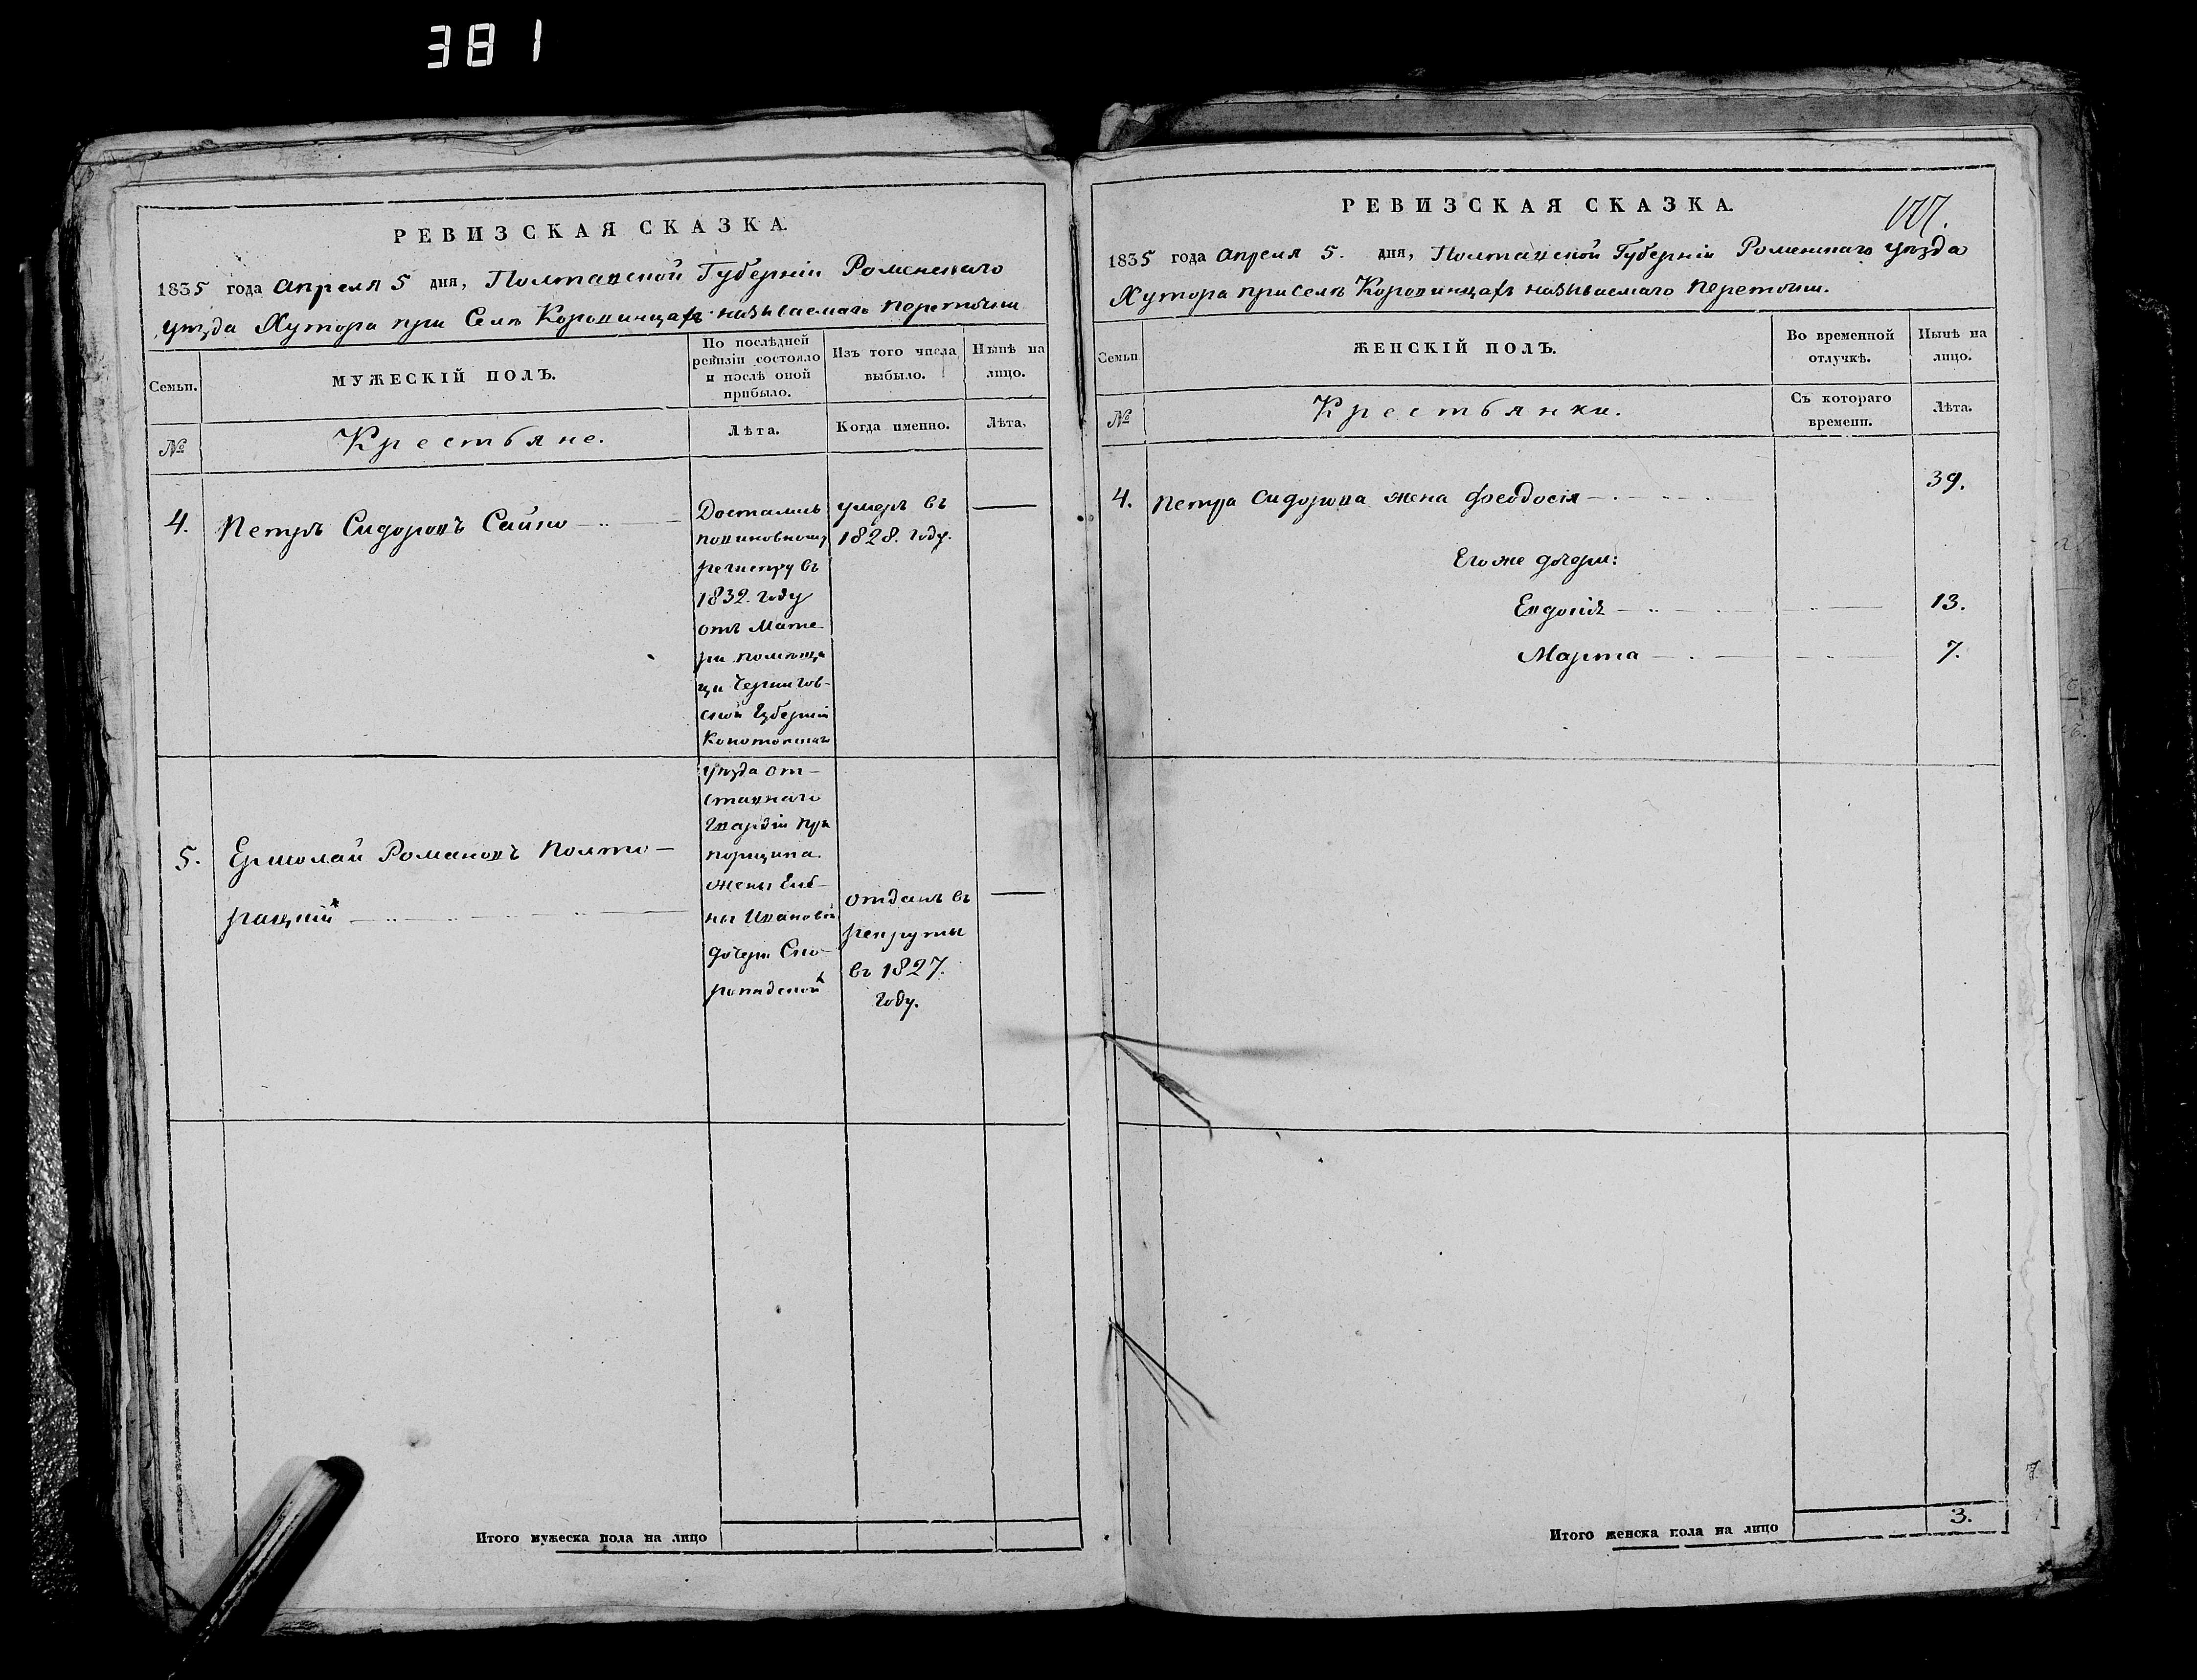 381
РЕВИЗСКАЯ СКАЗКА.
1835 года Апреля 5 дня, Полтавской Губернiи Роменскаго
уѣзда Хутора при Селѣ Коровинцахъ называемаго Переточки
Семьи.
МУЖЕСКIЙ ПОЛЪ.
По послѣдней
ревизiи состояло
и послѣ оной
прибыло.
Изъ того числа
выбыло.
Нынѣ на
лицо.
№
Крестьяне.
Лѣта.
Когда именно.
Лѣта.
4.
Петръ Сидоровъ Сайко
Достались
повиновному
регистру въ
1832. году
отъ Мате
ри помѣщи
цы Чернигов-
ской Губернiи
Конотопскаго
уѣзда от-
ставнаго
Гвардiи пра
порщика
жены Еле-
ны Ивановой
дочери Ско-
ропадской
умеръ въ
1828. году.
5.
Ермолай Романовъ Полто-
рацкiй
отданъ въ
рекруты
въ 1827.
году.
Итого мужеска пола на лицо
РЕВИЗСКАЯ СКАЗКА.
1835 года Апреля 5. дня, Полтавской Губернiи Роменскаго уѣзда
Хутора при Селѣ Коровинцахъ называемаго Переточки.
Семьи
ЖЕНСКIЙ ПОЛЪ.
Во временной
отлучкѣ.
Нынѣ на
лицо.
№
Крестьянки.
Съ котораго
времени.
Лѣта.
4.
Петра Сидорова жена Феодосiя
39.
Его же дочери:
Евдокiя
13.
Марта
7.
Итого женска пола на лицо
3.